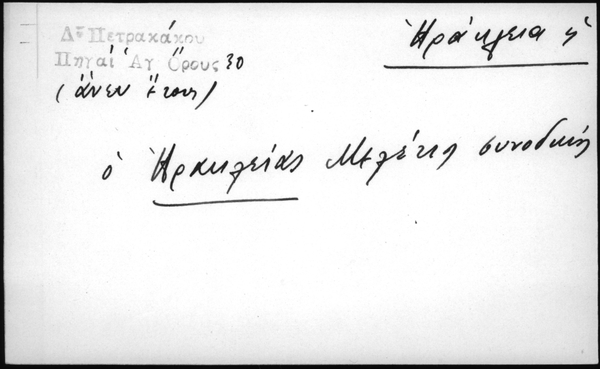 Δ. Πετρακάκου
Πηγαὶ Ἁγ Ὄρους 30
(ἄνευ ἔτους)
Ἡράκλεια ἡ
ὁ Ἡρακλείας Μελέτιος